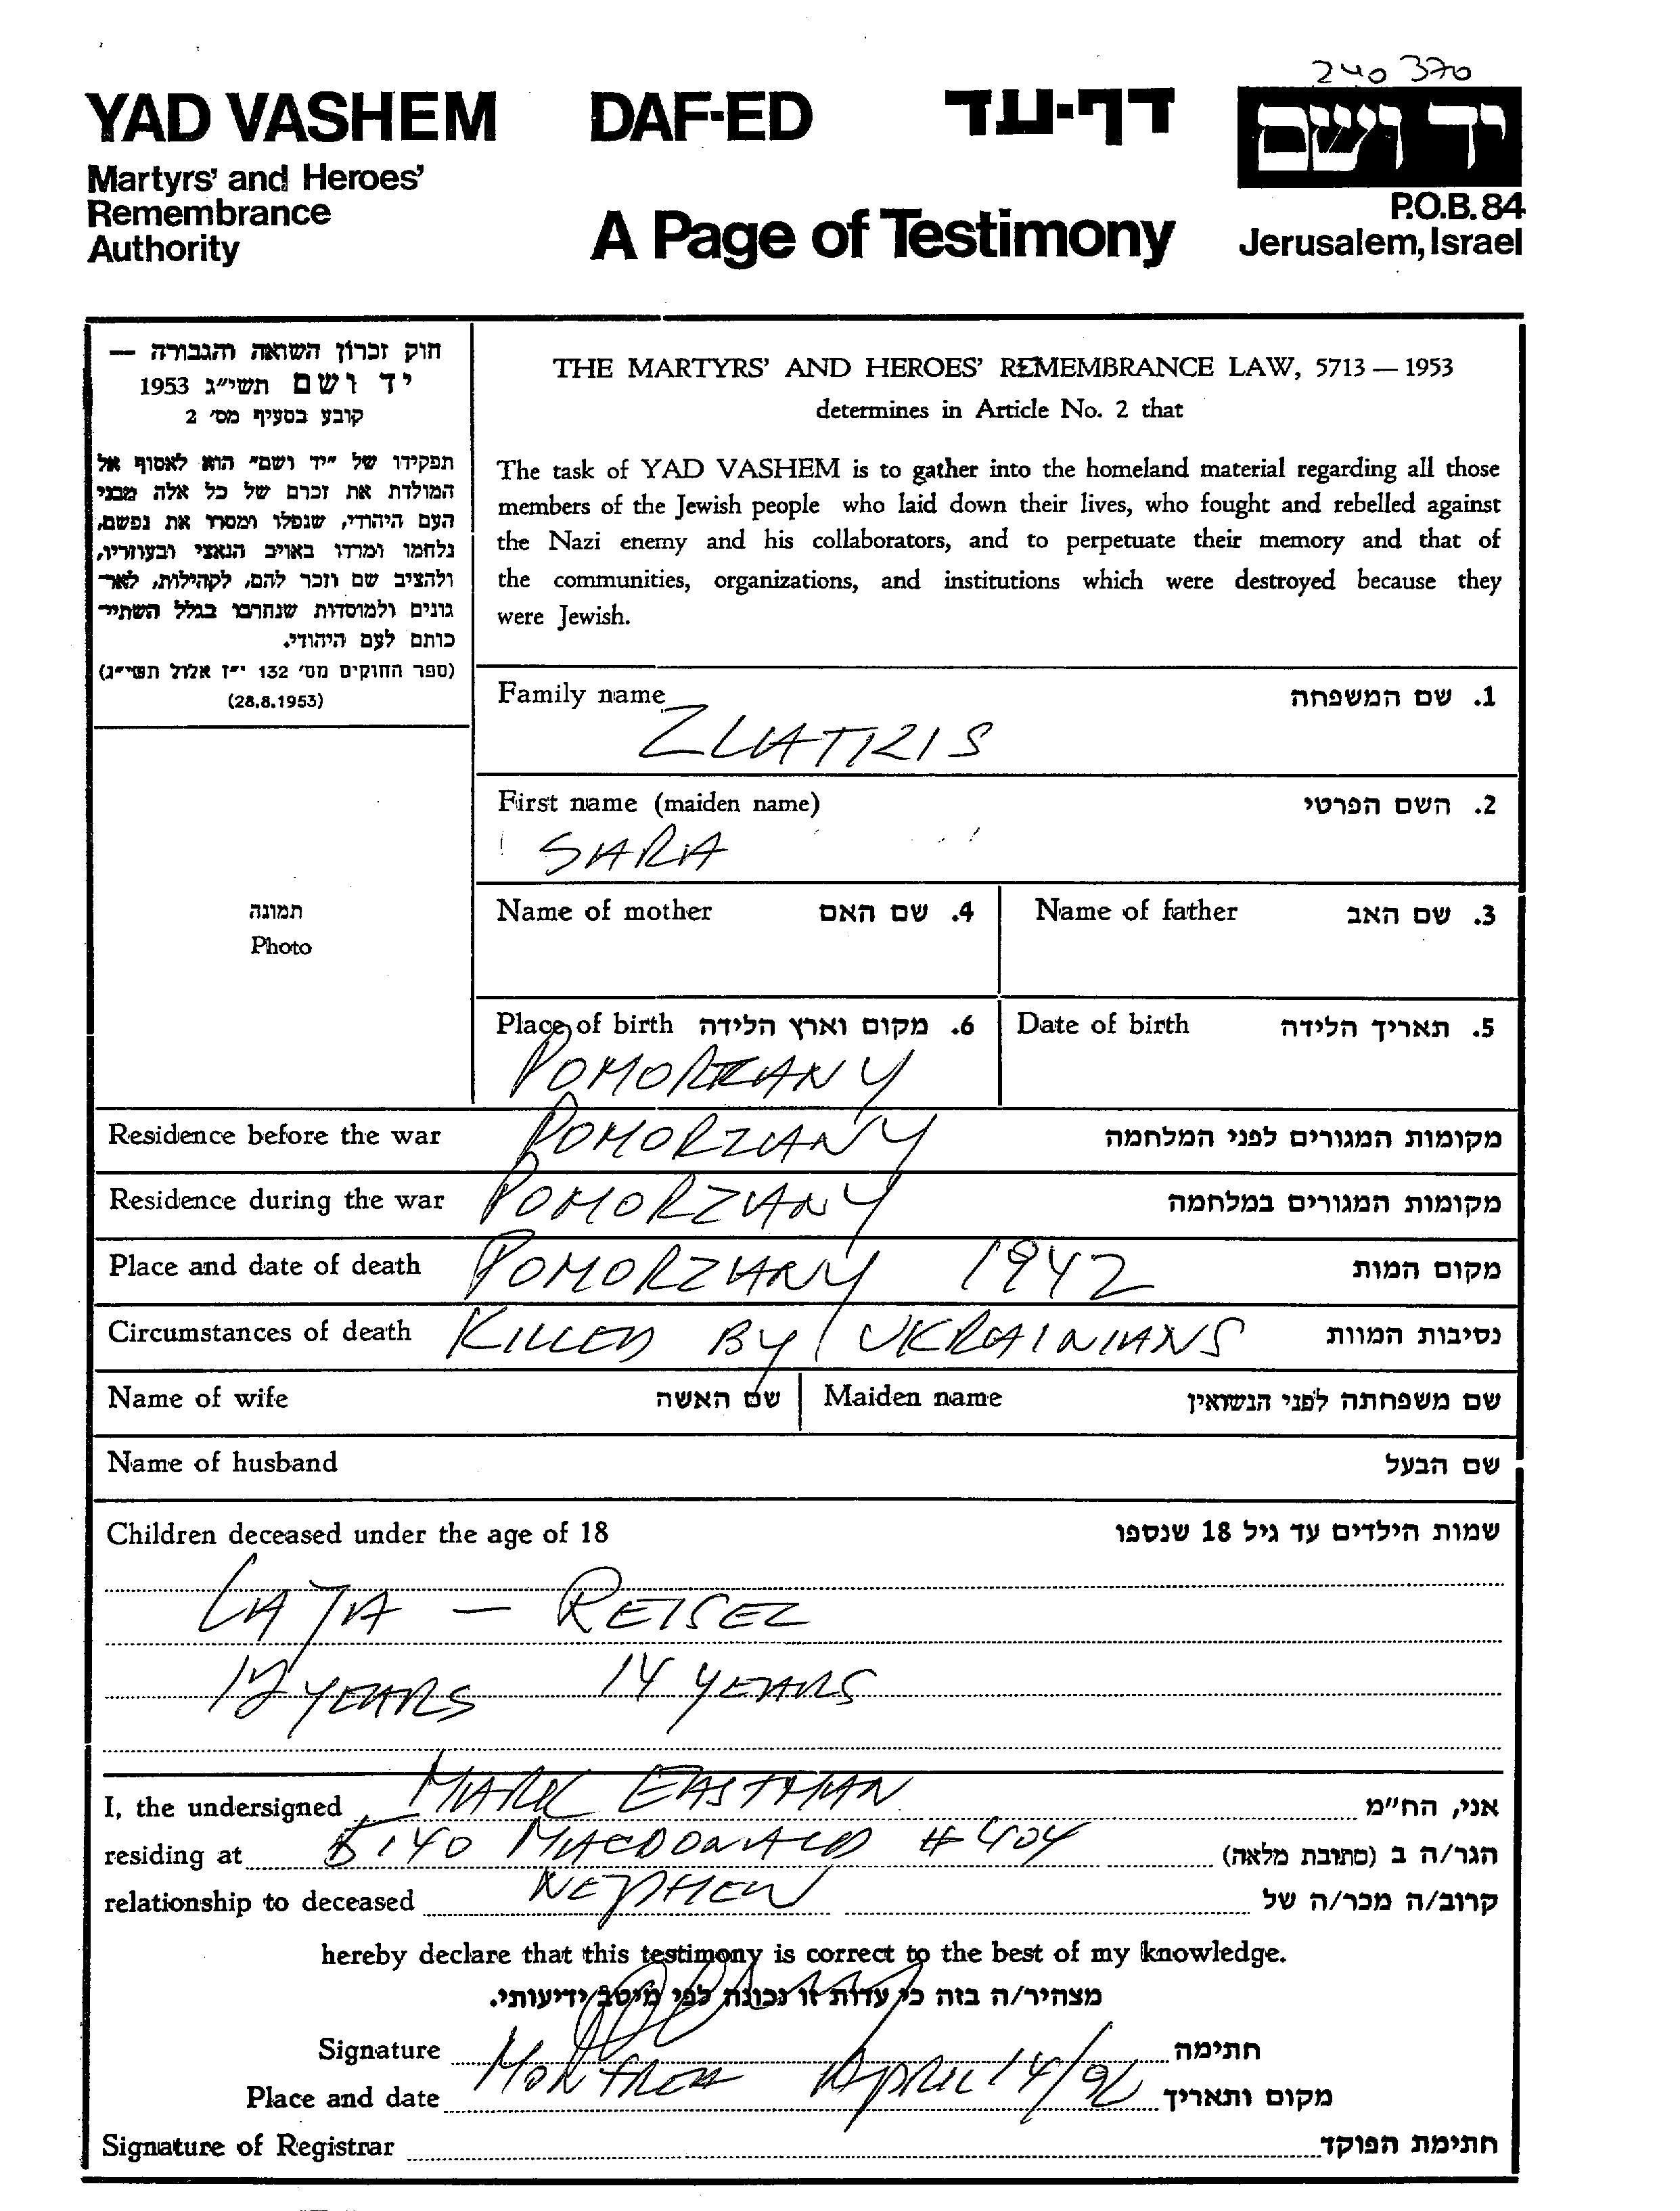 240 370
YAD VASHEM DAF-ED דף-עד יד ושם
Martyrs' and Heroes'
Remembrance
Authority
A Page of Testimony
P.O.B. 84
Jerusalem, Israel
חוק זכרון השואה והגבורה —
יד ושם תשי״ג 1953
קובע בסעיף מס׳ 2
תפקידו של ״יד ושם״ הוא לאסוף אל
המולדת את זכרם של כל אלה מבני
העם היהודי, שנפלו ומסרו את נפשם,
נלחמו ומרדו באויב הנאצי ובעוזריו,
ולהציב שם וזכר להם, לקהילות, לאר־
גונים ולמוסדות שנחרבו בגלל השתיי־
כותם לעם היהודי.
(ספר החוקים מס׳ 132 י״ז אלול תשי״ג)
(28.8.1953)
THE MARTYRS' AND HEROES' REMEMBRANCE LAW, 5713 — 1953
determines in Article No. 2 that
The task of YAD VASHEM is to gather into the homeland material regarding all those
members of the Jewish people who laid down their lives, who fought and rebelled against
the Nazi enemy and his collaborators, and to perpetuate their memory and that of
the communities, organizations, and institutions which were destroyed because they
were Jewish.
Family name 1. שם המשפחה
ZLATKIS
First name (maiden name) 2. השם הפרטי
SARA
תמונה
Photo
Name of mother 4. שם האם Name of father 3. שם האב
Place of birth 6. מקום וארץ הלידה Date of birth 5. תאריך הלידה
POMORZANY
Residence before the war POMORZANY מקומות המגורים לפני המלחמה
Residence during the war POMORZANY מקומות המגורים במלחמה
Place and date of death POMORZANY 1942 מקום המות
Circumstances of death KILLED BY UKRAINIANS נסיבות המוות
Name of wife שם האשה Maiden name שם משפחתה לפני הנשואין
Name of husband שם הבעל
Children deceased under the age of 18 שמות הילדים עד גיל 18 שנספו
LAJA — REISEL
12 YEARS 14 YEARS
I, the undersigned MARK EASTMAN אני, הח״מ
residing at 5140 MACDONALD # 404 הגר/ה ב (כתובת מלאה)
relationship to deceased NEPHEW קרוב/ה מכר/ה של
hereby declare that this testimony is correct to the best of my knowledge.
מצהיר/ה בזה כי עדות זו נכונה לפי מיטב ידיעותי.
Signature חתימה
Place and date MONTREAL APRIL 14/92 מקום ותאריך
Signature of Registrar חתימת הפוקד